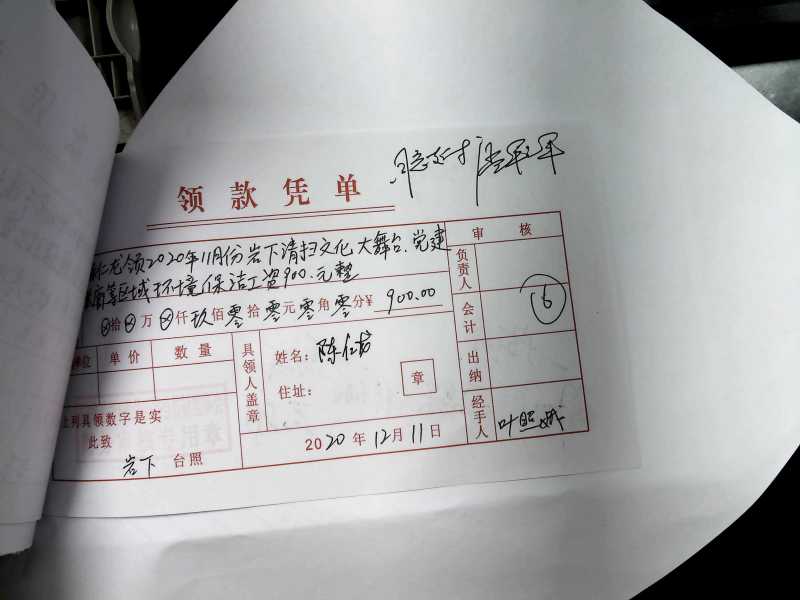 同意支付
领款凭单
仁龙领2020年11月份岩下清扫文化大舞台、党建
等区域环境保洁工资900.元整
⊗拾⊗万⊗仟玖佰零拾零元零角零分¥ 900.00
审核
负责人
会计
16
出纳
经手人
单位 单价 数量
具领人盖章
姓名: 陈仁龙
住址:
章
上列具领数字是实
此致
岩下 台照
2020年12月11日